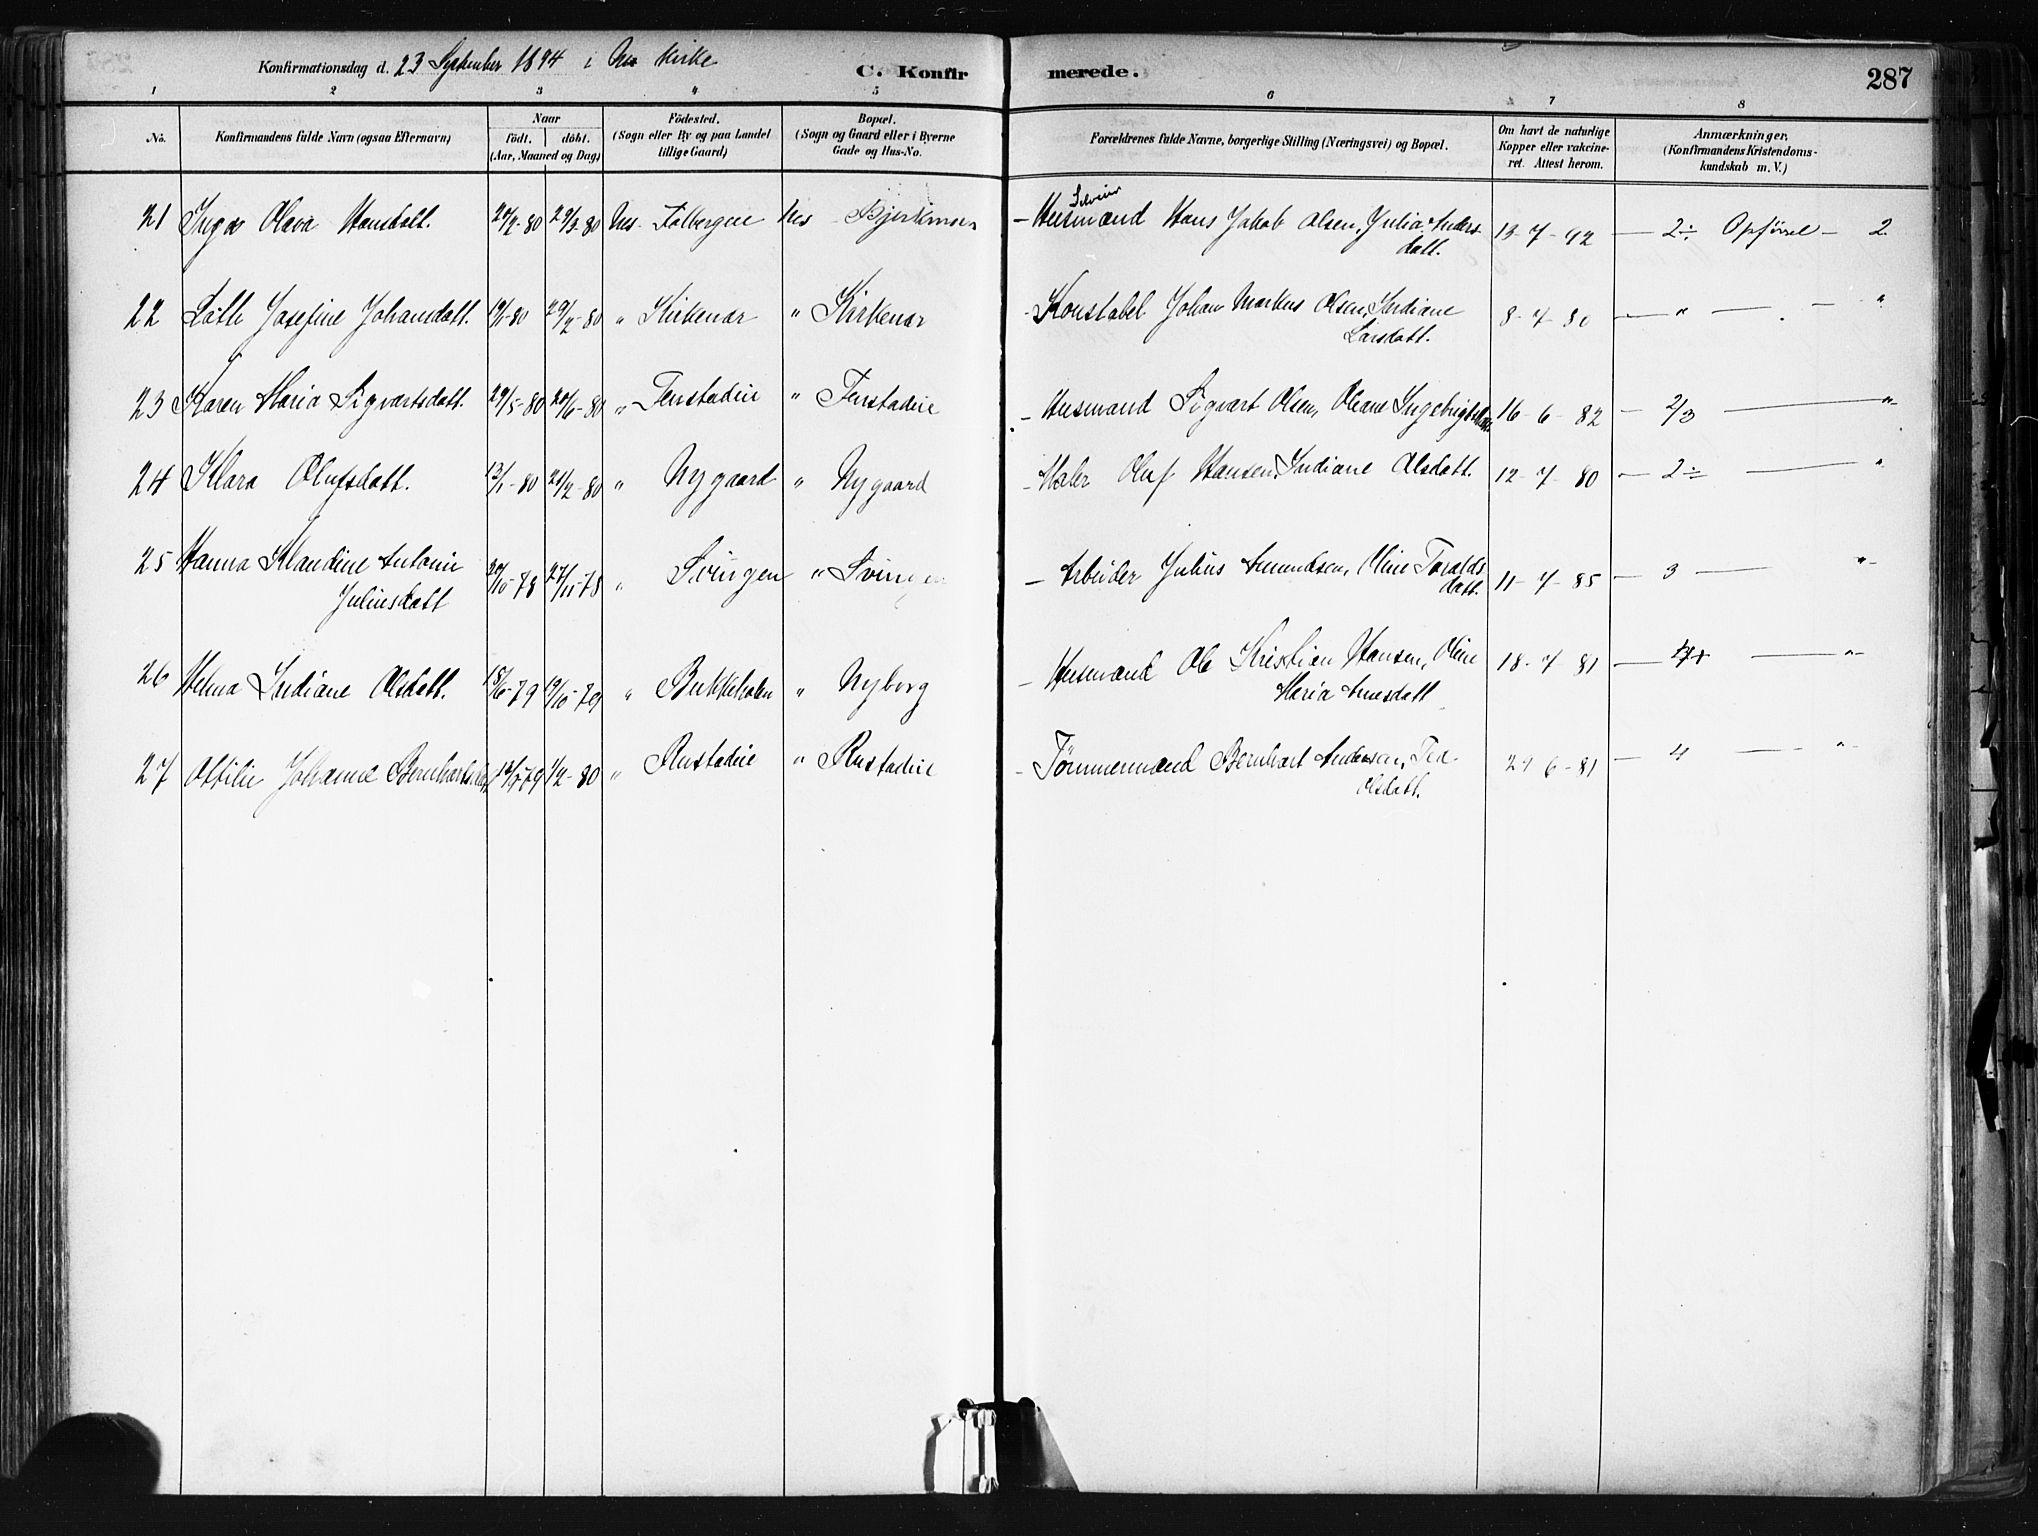 Konfirmationsdag d. 23 September 1894 i Nes Kirke
C. Konfirmerede.
287
1 2 3 4 5 6 7 8
No. Konfirmandens fulde Navn (ogsaa Efternavn) Naar födt. döbt. (Aar, Maaned og Dag) Födested. (Sogn eller By og paa Landet tillige Gaard) Bopæl. (Sogn og Gaard eller i Byerne Gade og Hus-No. Forældrenes fulde Navne, borgerlige Stilling (Næringsvei) og Bopæl. Om havt de naturlige Kopper eller vakcineret. Attest herom. Anmærkninger. (Konfirmandens Kristendomskundskab m. V.)
21 Inga Olava Hansdatt. -80 29/3-80 Nes Nes - Husmand Hans Jakob Olsen, Julia Andersdatt. 13-7-92 — 2÷ Opförsel — 2
22 Josefine Johansdatt. -80 29/2-80 " Kirkenær " Kirkenær - Konstabel Johan Markus Olsen, Indiane Larsdatt. 8-7-80 — " — — "
23 Karen Maria Sigvartsdatt. 29/5-80 20/6-80 " Tenstadeie " Tenstadeie - Husmand Sigvart Olsen, Oleane 16-6-82 — 2/3 — "
24 Klara Olufsdatt. 13/1-80 -80 " Nygaard " Nygaard - Maler Oluf Hansen, Indiane Olsdatt. 12-7-80 — 2÷ — "
25 Hanna Klaudine Antonie Juliusdatt -78 27/11-78 " Svingen " Svingen - Arbeider Julius Amundsen, Oline Toraldsdatt. 11-7-85 — 3 — "
26 Helma Indiane Olsdatt. 15/6-79 19/10-79 " Bukkeholen " Nyborg - Husmand Ole Kristian Hansen, Oline Maria Arnesdatt 18-7-81 — — "
27 Ottilie Johanne -79 1/2-80 " Rustadeie " Rustadeie - Tömmermand Bernhart Andersen, Tea Olsdatt. 29-6-81 — 4 — "